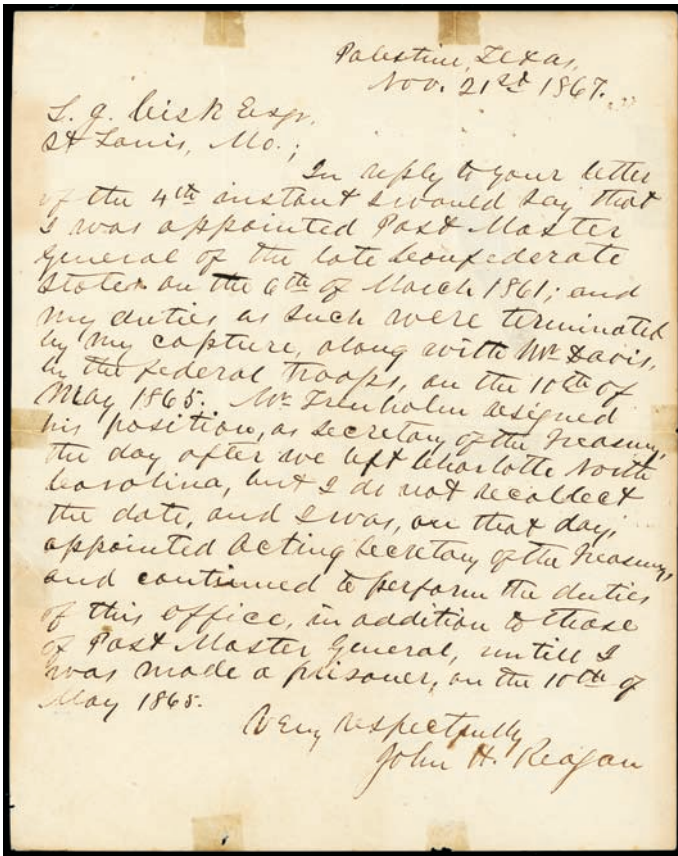 Palestine, Texas,
Nov. 21st 1867.
L. J. Cisk Esqr.
St Louis, Mo.;
In reply to your letter
of the 4th instant I would say that
I was appointed Post Master
General of the late Confederate
States on the 6th of March 1861; and
my duties as such were terminated
by my capture, along with Mr Davis,
by the federal troops, on the 10th of
May 1865. Mr Trenholm resigned
his position, as secretary of the Treasury,
the day after we left Charlotte North
Carolina, but I do not recollect
the date, and I was, on that day,
appointed Acting Secretary of the Treasury,
and continued to perform the duties
of this office, in addition to those
of Post Master General, untill I
was made a prisoner, on the 10th of
May 1865.
Very respectfully
John H. Reagan